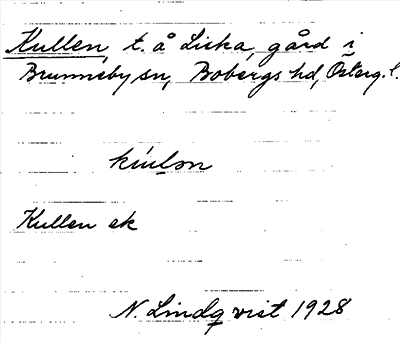 Kullen, t. å Liska, gård i
Brunneby sn, Bobergs hd, Österg. l.
kúlən
Kullen ek
N. Lindqvist 1928